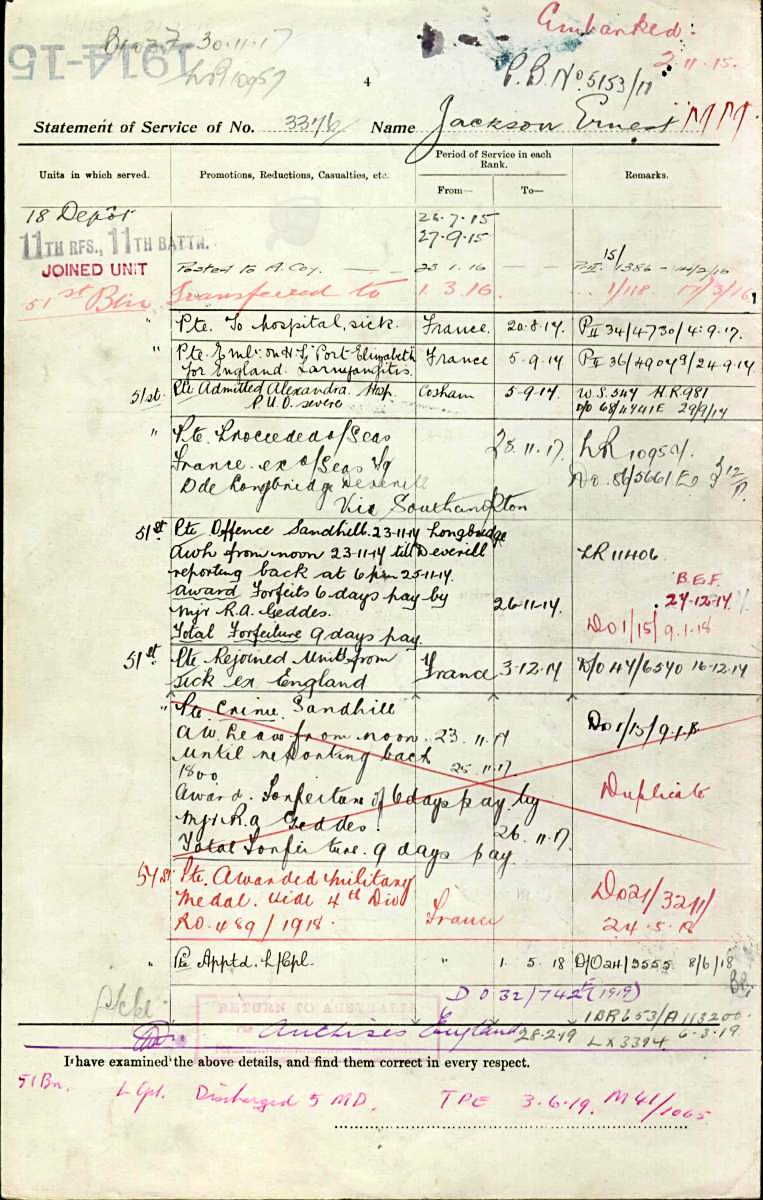 Embarked:
2-11-15.
1914-15
30-11-17
LR10957
4
P.B. No. 5153/17
Statement of Service of No. 3376 Name Jackson Ernest MM
Units in which served. Promotions, Reductions, Casualties, etc. Period of Service in each Rank. Remarks.
From— To—
18 Depôt 26.7.15
27.9.15
11TH RFS., 11TH BATTN.
JOINED UNIT Posted to A. Coy. 1.16 15/1386
51st Btn Transferred to 1.3.16. 1/118
" Pte. To hospital, sick. France. 20.8.17. PII 34/4730/4.9.17.
" Pte. Emb: on H.S. "Port Elizabeth France 5.9.17. PII 36/4904 /24.9.17.
for England. Laryngitis.
51st. Pte Admitted Alexandra. Hosp. Cosham 5.9.17. W.S.547 H.R981
P.U.O. severe D/O 68/4741E 29/9/17
" Pte. Proceeded o/Seas 28.11.17. LR 10957/.
France. ex o/Seas Dg Do. 86/5661
Dde Longbridge Deverill
Via Southampton
51st Pte Offence Sandhill. 23-11-17 Longbridge
Awh from noon 23-11-17 till Deverill LR 11406
reporting back at 6 pm 25-11-17.
Award Forfeits 6 days pay by 26-11-17. B.E.F.
Mjr R.A. Geddes. 27-12-17.
Total Forfeiture 9 days pay. Do 1/15/9.1.18
51st. Pte Rejoined Unit from France 3.12.17 D/O 47/6540 16-12-17
sick ex England
" Pte. Crime. Sandhill Do 1/15/9.1.18
A.W. Leave from noon. 23.11.17
until reporting back 25.11.17.
1800
Award. Forfeiture of 6 days pay by Duplicate
Mjr R.A Geddes. 26.11.17.
Total Forfeiture. 9 days pay.
51st Pte. Awarded Military Do 21/3211/
Medal. Vide 4th Div France 24.5.18
RO. 489/1918.
" Pte Apptd. L/Cpl. " 1. 5. 18 D/O 24/3555 8/6/18
D O 32/742 (1919)
RETURN TO AUSTRALIA 1DR653/A113200.
Anchises England 28-2-19 LX3394 6-3-19.
I have examined the above details, and find them correct in every respect.
51 Bn. L Cpl. Discharged 5 MD. TPE 3.6.19. M41/1065